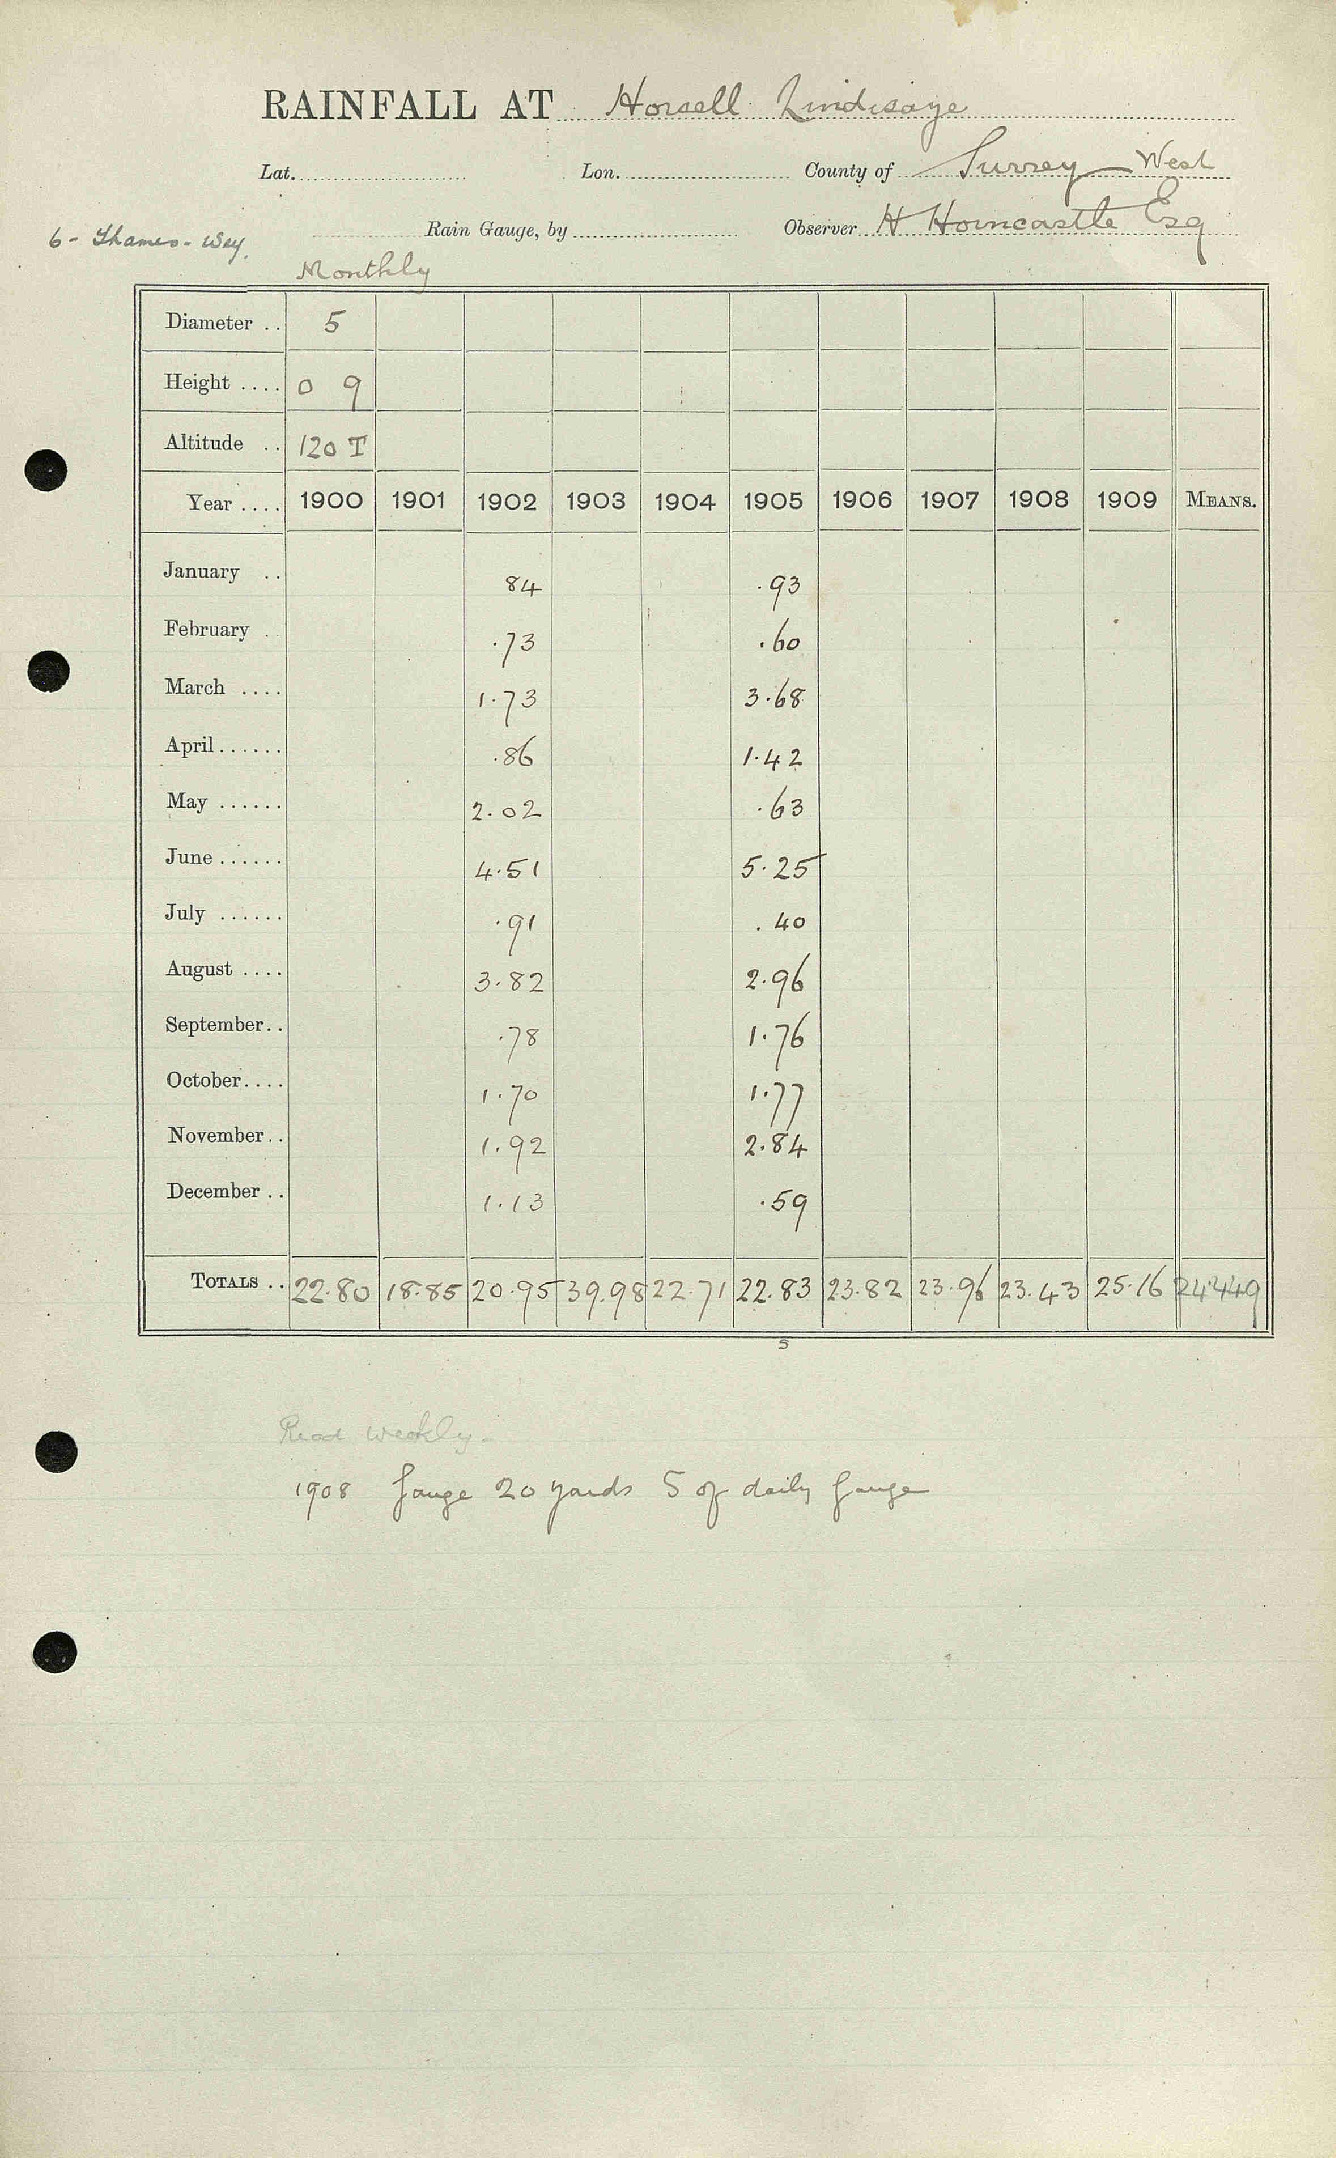 RAINFALL AT Horsell Lindisaye
Lat. Lon. County of Surrey West
6 - Thames - Wey. Rain Gauge, by Observer H Horncastle Esq
Monthly
Diameter .. 5
Height .... 0 9
Altitude .. 120 T
Year .... 1900 1901 1902 1903 1904 1905 1906 1907 1908 1909 MEANS.
January .. 84 .93
February . .73 .60
March .... 1.73 3.68
April...... .86 1.42
May ...... 2.02 .63
June ...... 4.51 5.25
July ...... .91 .40
August .... 3.82 2.96
September.. .78 1.76
October.... 1.70 1.77
November.. 1.92 2.84
December .. 1.13 .59
TOTALS .. 22.80 18.85 20.95 39.98 22.71 22.83 23.82 23.96 23.43 25.16
S
Read weekly -
1908 Gauge 20 yards S of daily Gauge